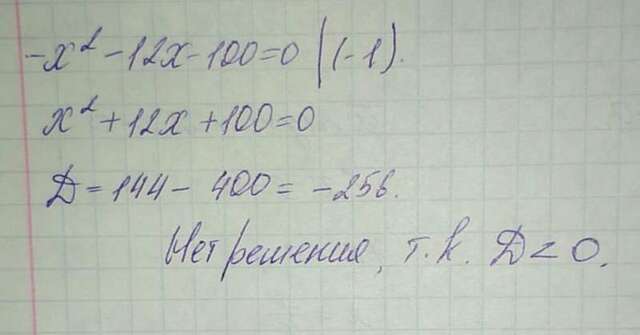 -x² - 12x - 100 = 0 | (-1).
x² + 12x + 100 = 0
D = 144 - 400 = -256.
Нет решения, т.к. D < 0.